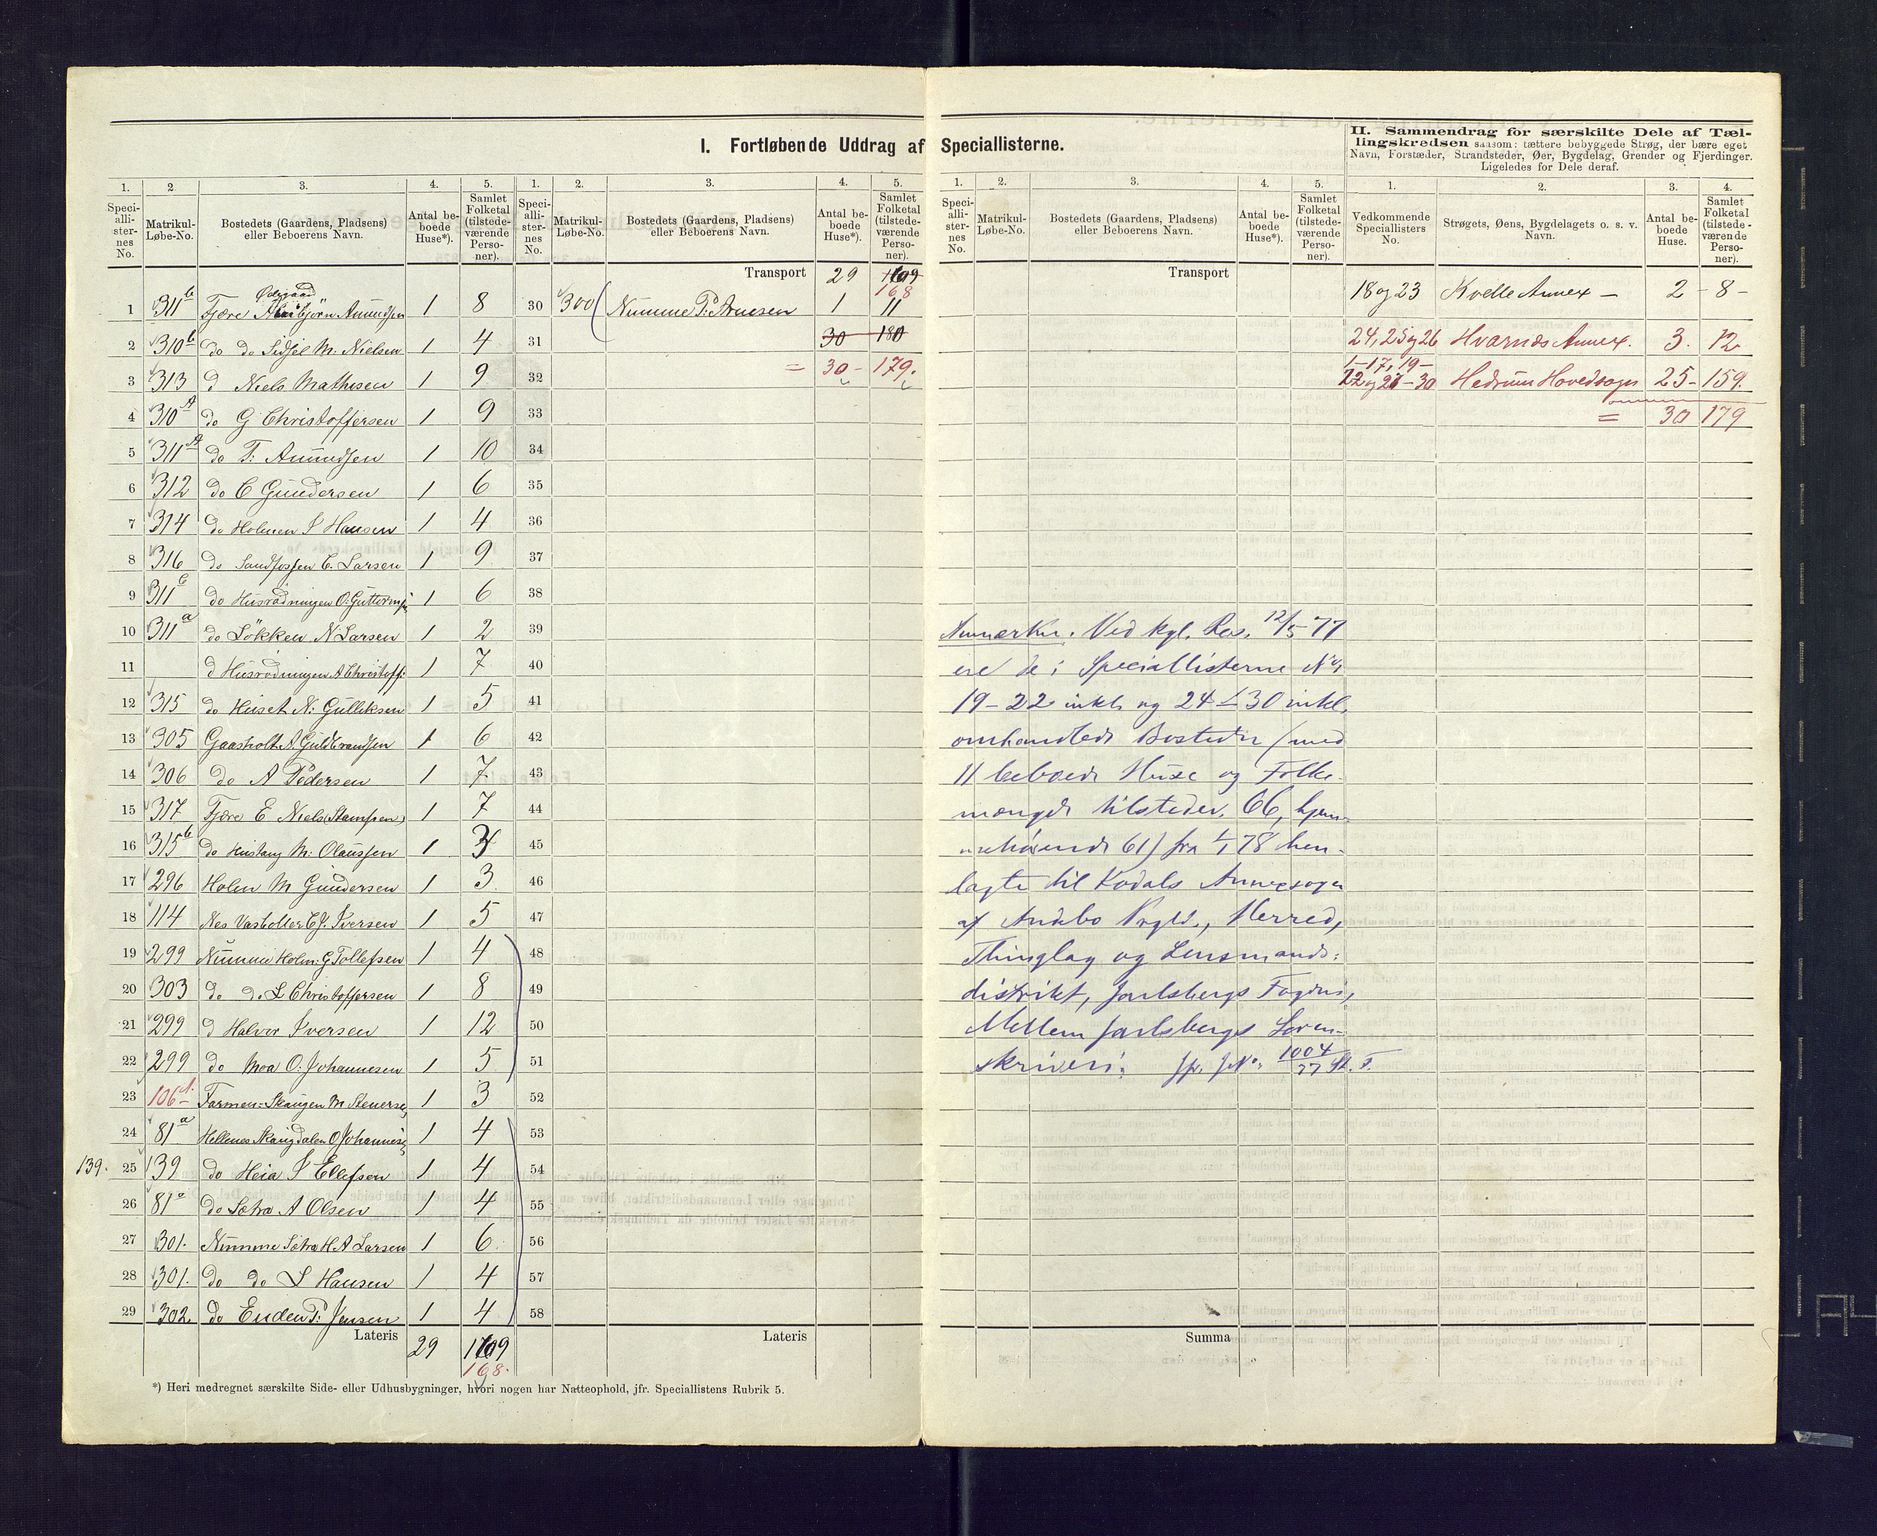 I. Fortløbende Uddrag af Speciallisterne.
II. Sammendrag for særskilte Dele af Tællingskredsen saasom: tættere bebyggede Strøg, der bære eget
Navn, Forstæder, Strandsteder, Øer, Bygdelag, Grender og Fjerdinger.
Ligeledes for Dele deraf.
1. 2 3. 4. 5. 1. 2. 3. 4. 5. 1. 2. 3. 4. 5. 1. 2. 3. 4.
Speciallisternes No. Matrikul-Løbe-No. Bostedets (Gaardens, Pladsens) eller Beboerens Navn. Antal beboede Huse*). Samlet Folketal (tilstedeværende Personer).
Speciallisternes No. Matrikul-Løbe-No. Bostedets (Gaardens, Pladsens) eller Beboerens Navn. Antal beboede Huse*). Samlet Folketal (tilstedeværende Personer).
Speciallisternes No. Matrikul-Løbe-No. Bostedets (Gaardens, Pladsens) eller Beboerens Navn. Antal beboede Huse*). Samlet Folketal (tilstedeværende Personer).
Vedkommende Speciallisters No. Strøgets, Øens, Bygdelagets o. s. v. Navn. Antal beboede Huse. Samlet Folketal (tilstedeværende Personer).
1 311b Fjære Ødegaard Amundsen 1 8
2 310b do do Sidsel M. Nielsen 1 4
3 313 d Niels Mathisen 1 9
4 310A do G Christoffersen 1 9
5 311A do T: Amundsen 1 10
6 312 do C Gundersen 1 6
7 314 do Holmen S Hansen 1 4
8 316 do Sandfossen C. Larsen 1 9
9 311 do Husrødningen O: Guttorms 1 6
10 311a do Løkken N Larsen 1 2
11 d Husrødningen A Christoff: 1 7
12 315 do Huset N: Gulliksen 1 5
13 305 Gaasholt A Guldbrandsen 1 6
14 306 do A Pedersen 1 7
15 317 Fjære E Niels (Stampen) 1 7
16 315b do M: Olaussen 1
17 296 Holm M Gundersen 1 3
18 114 Nes Vasbotten Iversen 1 5
19 299 Numme Holm: G Tollefsen 1 4
20 303 do do L Christoffersen 1 8
21 299 d Halvor Iversen 1 12
22 299 do Moa O: Johannesen 1 5
23 106A. Farmen: Skaugen M Stenersen 1 3
24 81a Hellenes Skaugdalen O Johannes 1 4
139. 25 139 do Heia S Ellefsen 1 4
26 81a do Sætra A Olsen 1 4
27 301. Numme Sætra H A Larsen 1 6
28 301. do do S Hansen 1 4
29 302. do Enden P: Jensen 1 4
Lateris 29 169
168.
*) Heri medregnet særskilte Side- eller Udhusbygninger, hvori nogen har Natteophold, jfr. Speciallistens Rubrik 5.
Transport 29 169
168
30 300 Numme P: Arnesen 1 11
31 30 180
32 = 30 - 179.
33
34
35
36
37
38
39
40
41
42
43
44
45
46
47
48
49
50
51
52
53
54
55
56
57
58
Lateris
Transport
Anmærkn. Ved kgl. Res. 12/5 77
ere de i Speciallisterne No.
19-22 inkl. og 24-30 inkl.
omhandlede Bosteder (med
11 beboede Huse og Folke-
mængde tilstedev. 66, hjem-
mehørende 61) fra 1/1 78 hen-
lagte til Kodals Annexsogn
af Andebo Prgld., Herred,
Thinglag og Lensmands-
distrikt, Jarlsbergs Fogderi,
Mellem Jarlsbergs Soren-
skriveri. Jfr. J.No. 1004/77
Summa
18 og 23 Kvelle Annex - 2 - 8 -
24, 25 og 26 Hvarnæs Annex. 3. 12
1-17, 19-
22 og 27-30 Hedrum Hovedsogn 25 - 159.
= 30 179